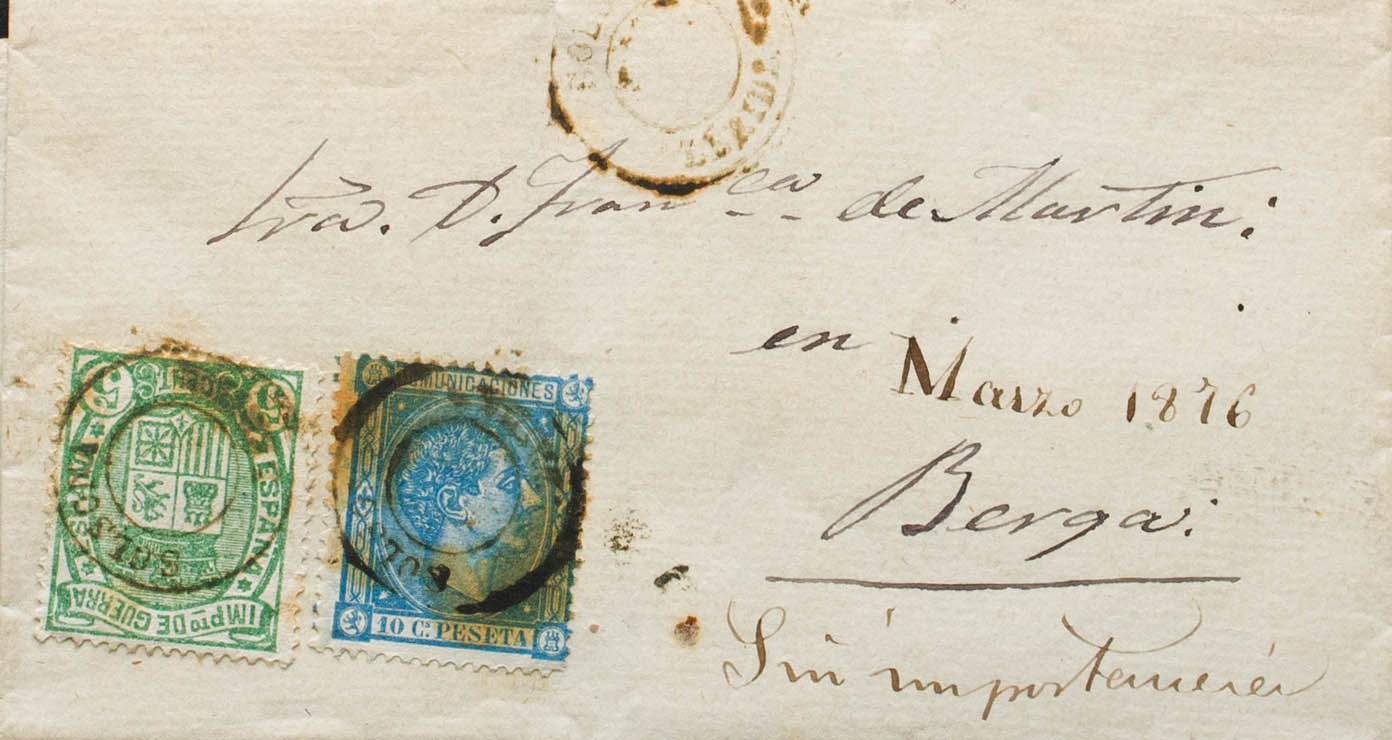 SOL
LERIDA
Sra. D. Fran^ca de Martin:
en Marzo 1876
Berga:
Sin importancia
5 5
ESPAÑA
IMPto DE GUERRA
SOLSONA
COMUNICACIONES
SOL
10 Cs. PESETA